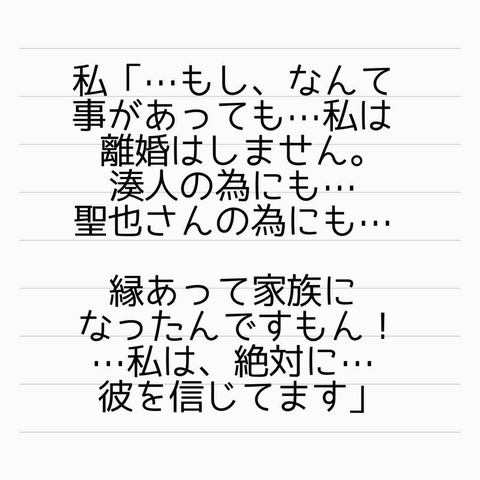 私「…もし、なんて
事があっても…私は
離婚はしません。
湊人の為にも…
聖也さんの為にも…
縁あって家族に
なったんですもん！
…私は、絶対に…
彼を信じてます」